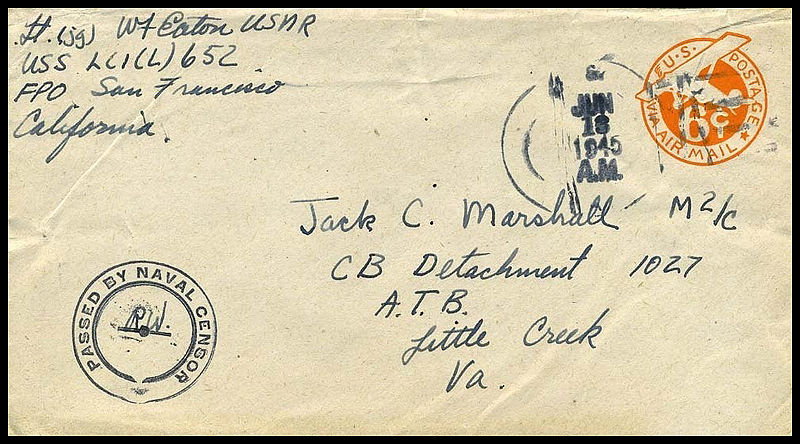 Lt. (jg) WF Eaton USNR
USS LCI(L) 652
FPO San Francisco
California.
U.S. POSTAGE
VIA AIR MAIL
6¢
JUN
18
1945
A.M.
Jack C. Marshall M2/c
CB Detachment 1027
A.T.B.
Little Creek
Va.
PASSED BY NAVAL CENSOR